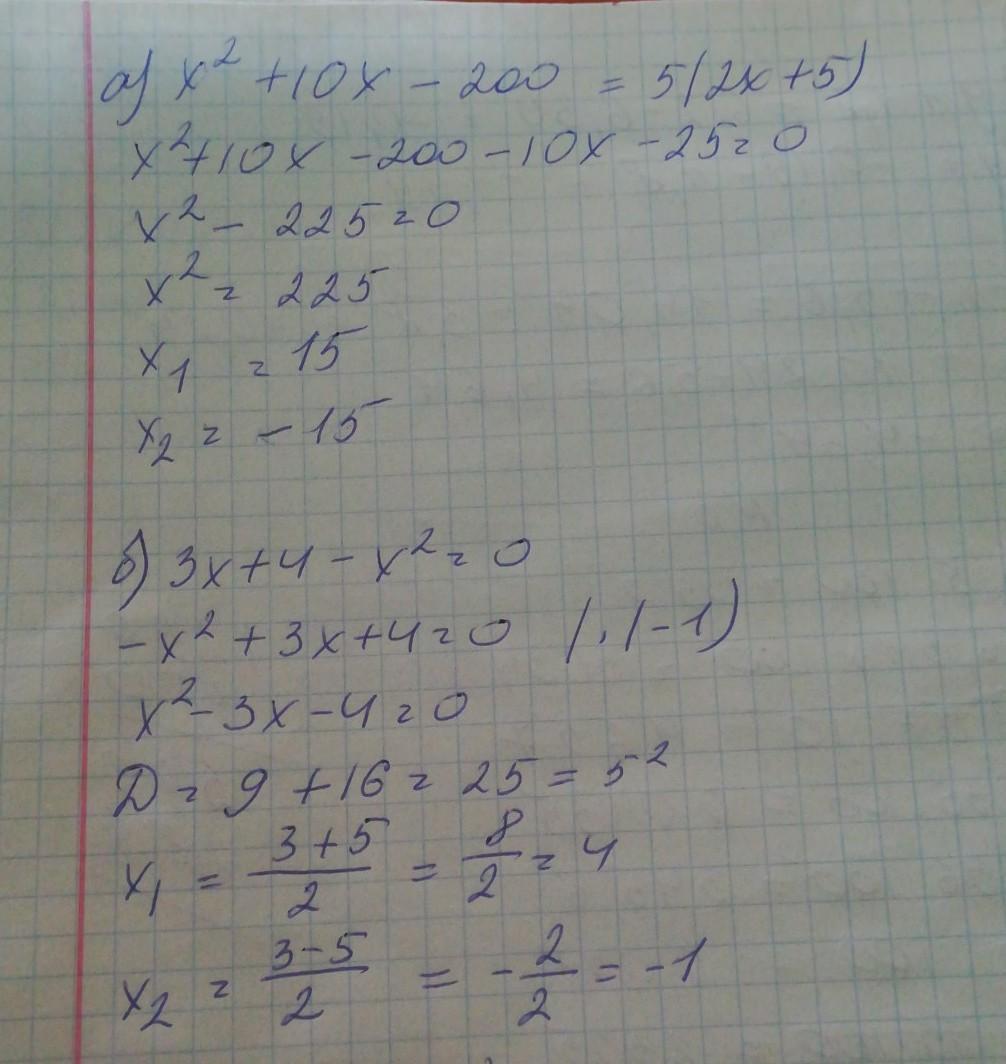 а) x² + 10x - 200 = 5(2x + 5)
x² + 10x - 200 - 10x - 25 = 0
x² - 225 = 0
x² = 225
x₁ = 15
x₂ = -15
б) 3x + 4 - x² = 0
-x² + 3x + 4 = 0 | · (-1)
x² - 3x - 4 = 0
Д = 9 + 16 = 25 = 5²
x₁ = (3+5)/2 = 8/2 = 4
x₂ = (3-5)/2 = -2/2 = -1